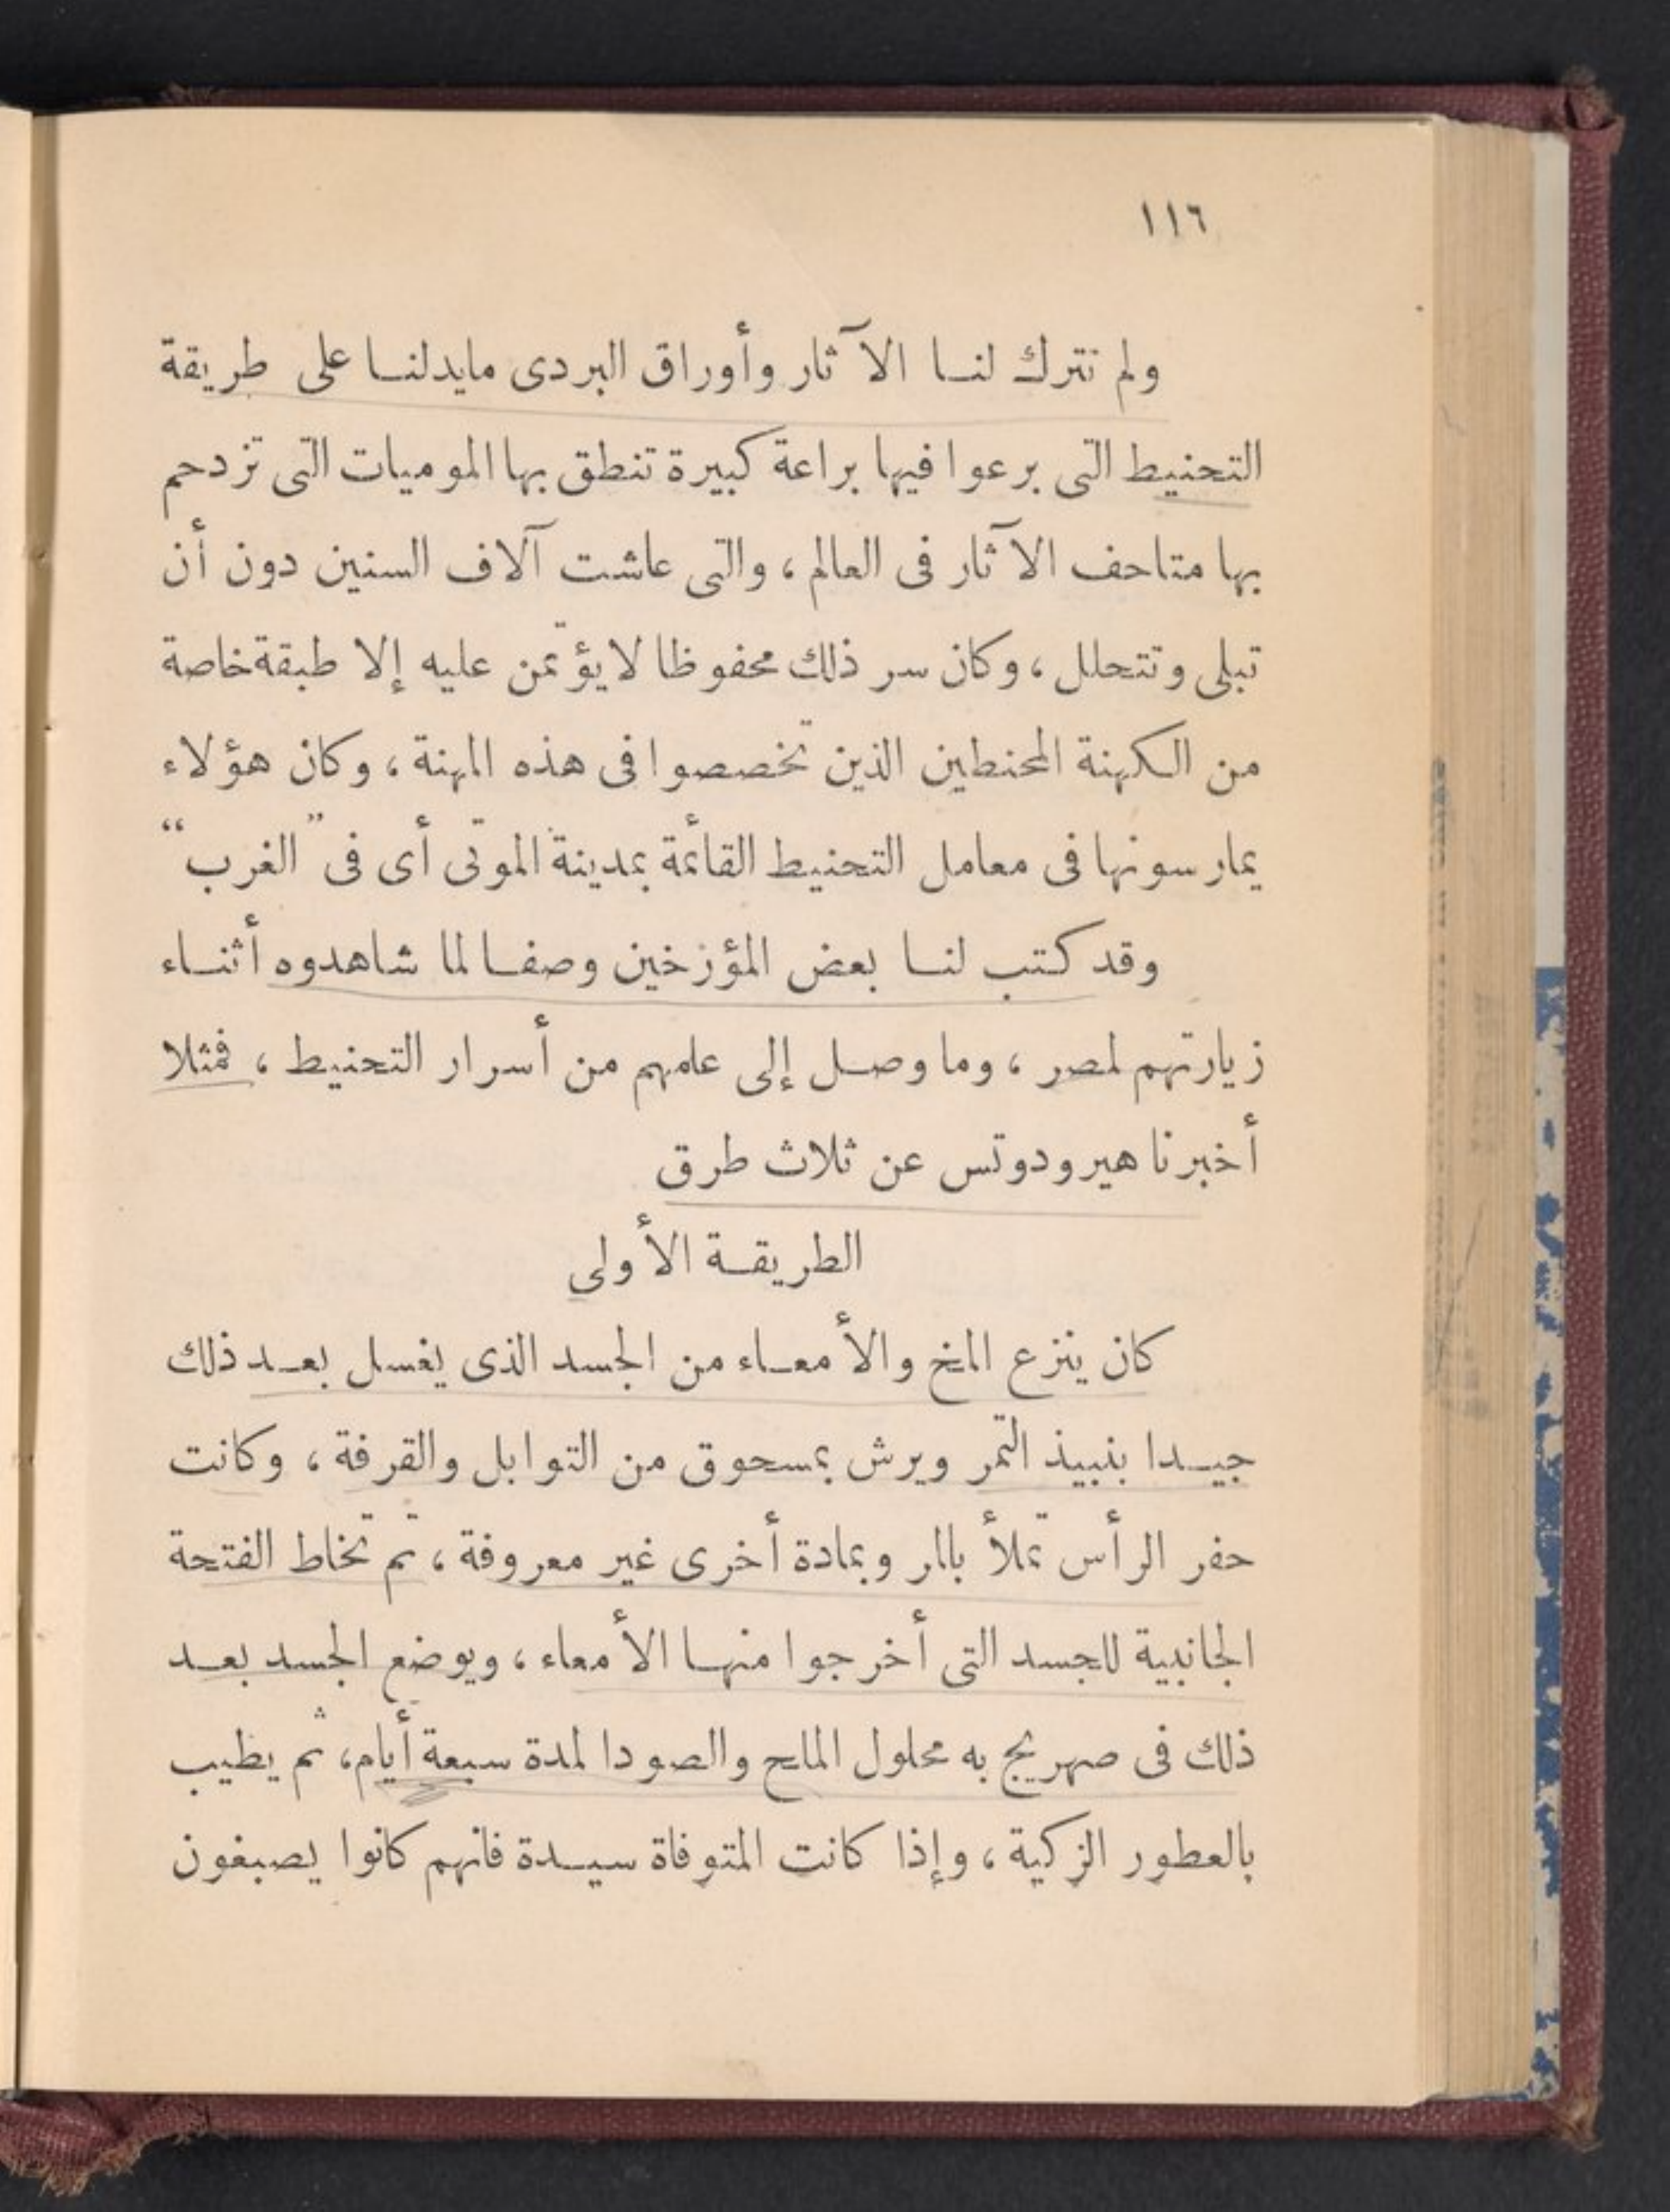 ١١٦
ولم تترك لنا الآثار وأوراق البردى مايدلنا على طريقة
التحنيط التى برعوا فيها براعة كبيرة تنطق بها الموميات التى تزدحم
بها متاحف الآثار فى العالم ، والتى عاشت آلاف السنين دون أن
تبلى وتتحلل ، وكان سر ذلك محفوظا لا يؤتمن عليه إلا طبقة خاصة
من الكهنة المحنطين الذين تخصصوا فى هذه المهنة ، وكان هؤلاء
يمارسونها فى معامل التحنيط القائمة بمدينة الموتى أى فى ”الغرب“
وقد كتب لنا بعض المؤرخين وصفا لما شاهدوه أثناء
زيارتهم لمصر ، وما وصل إلى علمهم من أسرار التحنيط ، فمثلا
أخبرنا هيرودوتس عن ثلاث طرق
الطريقة الأولى
كان ينزع المخ والأمعاء من الجسد الذى يغسل بعد ذلك
جيدا بنبيذ التمر ويرش بمسحوق من التوابل والقرفة ، وكانت
حفر الرأس تملأ بالمر وبمادة أخرى غير معروفة ، ثم تخاط الفتحة
الجانبية للجسد التى أخرجوا منها الأمعاء ، ويوضع الجسد بعد
ذلك فى صهريج به محلول الملح والصودا لمدة سبعة أيام، ثم يطيب
بالعطور الزكية ، وإذا كانت المتوفاة سيدة فانهم كانوا يصبغون